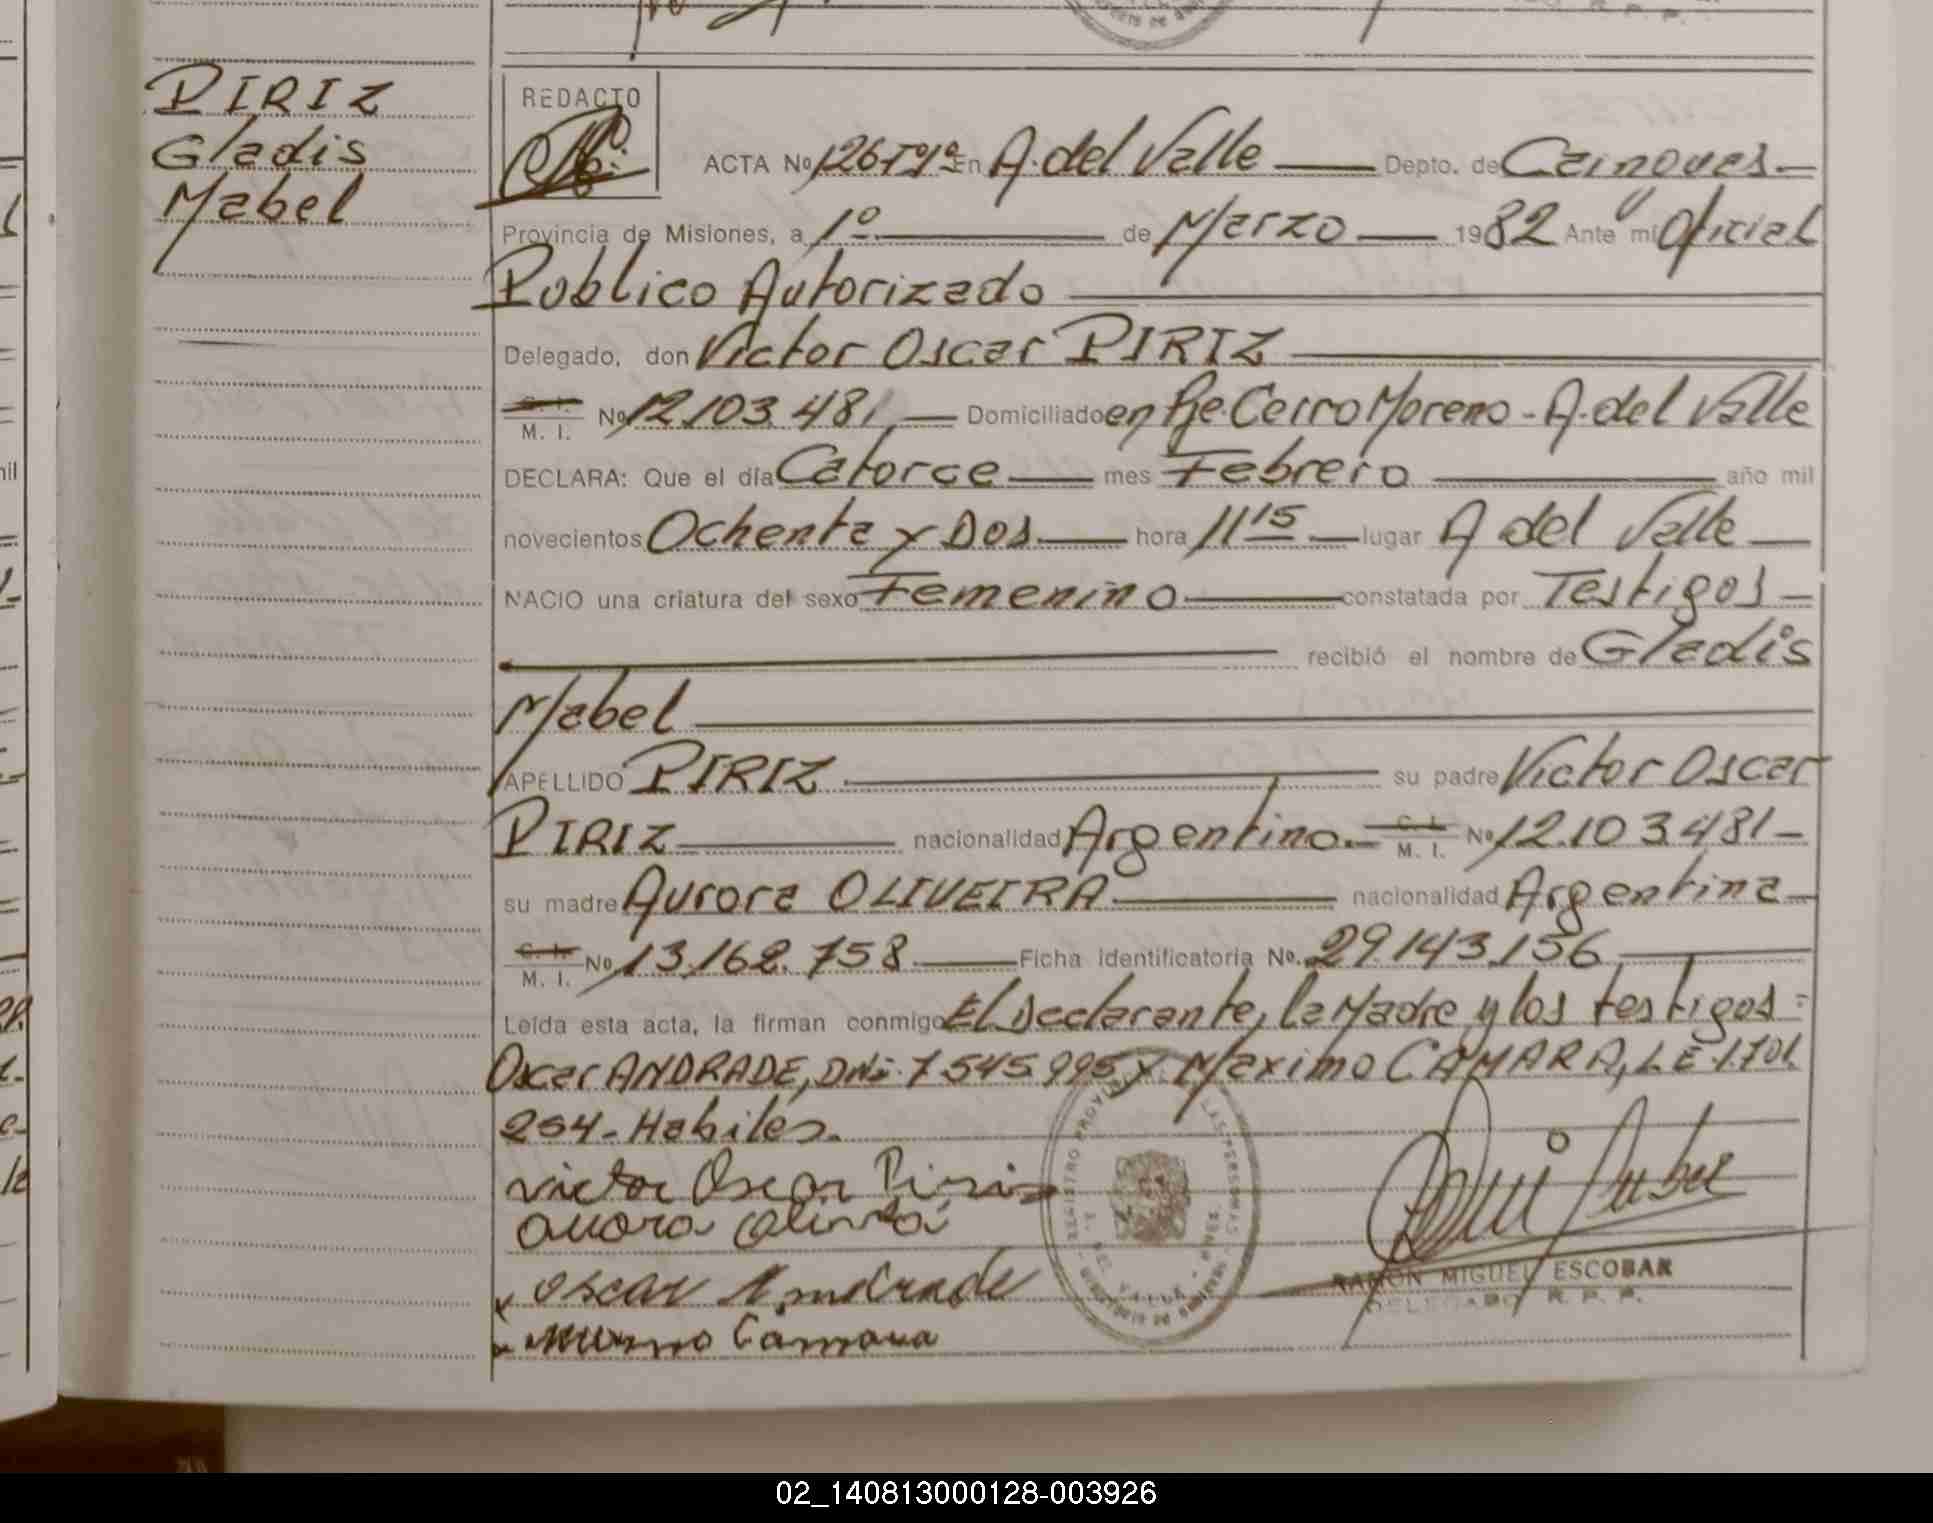 PIRIZ
Gladis
Mabel
REDACTO
ACTA Nº 126 Tº1º En A. del Valle Depto. de Cainguas
Provincia de Misiones, a 1º de Marzo 1982 Ante mi Oficial
Publico Autorizado
Delegado, don Victor Oscar PIRIZ
C. I.
M. I. Nº 12.103.481 Domiciliado en Pje. Cerro Moreno - A. del Valle
DECLARA: Que el día Catorce mes Febrero año mil
novecientos Ochenta y Dos hora 11 15 lugar A del Valle
NACIO una criatura del sexo Femenino constatada por Testigos
recibió el nombre de Gladis
Mabel
APELLIDO PIRIZ su padre Victor Oscar
PIRIZ nacionalidad Argentino. C. I. M. I. Nº 12.103.481
su madre Aurora OLIVEIRA nacionalidad Argentina
C. I.
M. I. Nº 13.162.758 Ficha identificatoria Nº. 29.143.156
Leída esta acta, la firman conmigo El Declarante, la Madre y los testigos:
Oscar ANDRADE, DNI. 7.545.995 y Maximo CAMARA, L E 1.701.
254 - Habiles.
Victor Oscar Piriz
Oscar Andrade
Camara
REGISTRO PROV. LAS PERSONAS
A. DEL VALLE - MNES.
RAMON MIGUEL ESCOBAR
DELEGADO R. P. P.
02_140813000128-003926